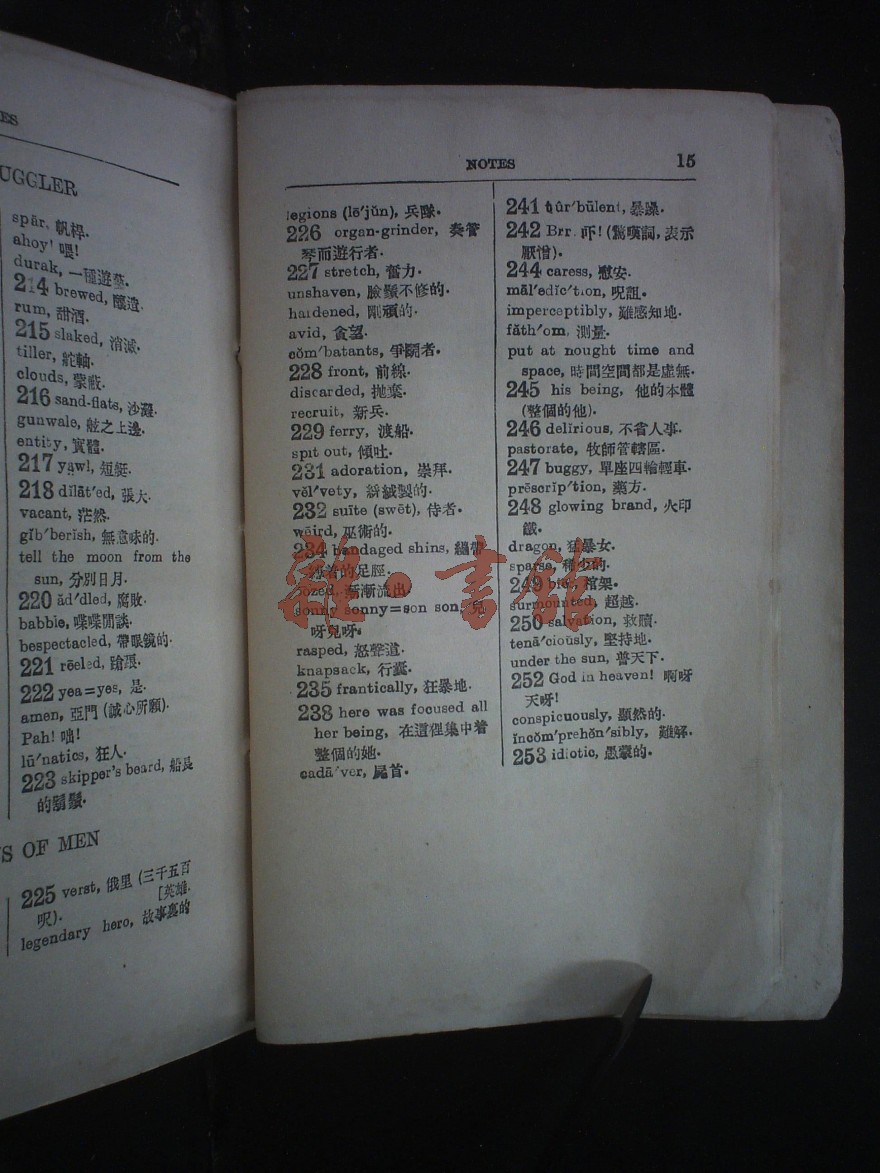 ES
UGGLER
spär, 帆桿.
ahoy! 喂!
durak, 一種遊藝.
214 brewed, 釀造.
rum, 甜酒.
215 slaked, 消滅.
tiller, 舵軸.
clouds, 蒙蔽.
216 sand-flats, 沙灘.
gunwale, 舷之上邊.
entity, 實體.
217 yawl, 短艇.
218 dīlāt'ed, 張大.
vacant, 茫然.
gĭb'berĭsh, 無意味的.
tell the moon from the
sun, 分別日月.
220 ăd'dled, 腐敗.
babble, 喋喋閒談.
bespectacled, 帶眼鏡的.
221 rēeled, 蹌踉.
222 yea=yes, 是.
amen, 亞門 (誠心所願).
Pah! 咄!
lū'natics, 狂人.
223 skipper's beard, 船長
的鬍鬚.
S OF MEN
225 verst, 俄里 (三千五百
呎). [英雄.
legendary hero, 故事裏的
NOTES 15
legions (lē'jŭn), 兵隊.
226 organ-grinder, 奏管
琴而遊行者.
227 stretch, 奮力.
unshaven, 臉鬚不修的.
hardened, 剛頑的.
avid, 貪望.
cŏm'batants, 爭鬭者.
228 front, 前線.
discarded, 抛棄.
recruit, 新兵.
229 ferry, 渡船.
spit out, 傾吐.
231 adoration, 崇拜.
vĕl'vety, 紛絨製的.
232 suīte (swēt), 侍者.
wēird, 巫術的.
234 bandaged shins, 繃帶
着的足脛.
oozed, 漸漸流出.
sonny sonny=son son, 兒
呀兒呀.
rasped, 怒聲道.
knapsack, 行囊.
235 frantically, 狂暴地.
238 here was focused all
her being, 在這裡集中着
整個的她.
cadā'ver, 屍首.
241 tûr'būlent, 暴躁.
242 Brr. 吓! (驚嘆詞, 表示
厭憎).
244 caress, 慰安.
măl'edĭc'tion, 呪詛.
imperceptibly, 難感知地.
făth'om, 測量.
put at nought time and
space, 時間空間都是虛無.
245 his being, 他的本體
(整個的他).
246 delĭrious, 不省人事.
pastorate, 牧師管轄區.
247 buggy, 單座四輪輕車.
prēscrĭp'tion, 藥方.
248 glowing brand, 火印
鐵.
dragon, 猛暴女.
sparse, 稀少的.
249 bier, 棺架.
surmounted, 超越.
250 salvation, 救贖.
tenā'ciously, 堅持地.
under the sun, 普天下.
252 God in heaven! 啊呀
天呀!
conspicuously, 顯然的.
ĭncŏm'prehĕn'sibly, 難解.
253 idiotic, 愚蒙的.
雜·書館